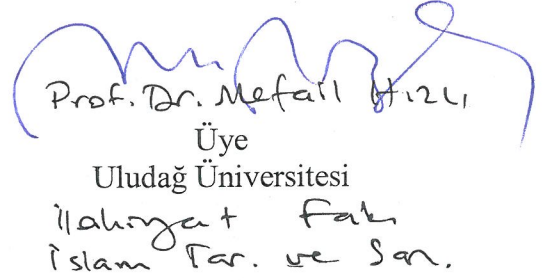 Prof. Dr. Mefail Hızlı
Üye
Uludağ Üniversitesi
İlahiyat Fak.
İslam Tar. ve San.